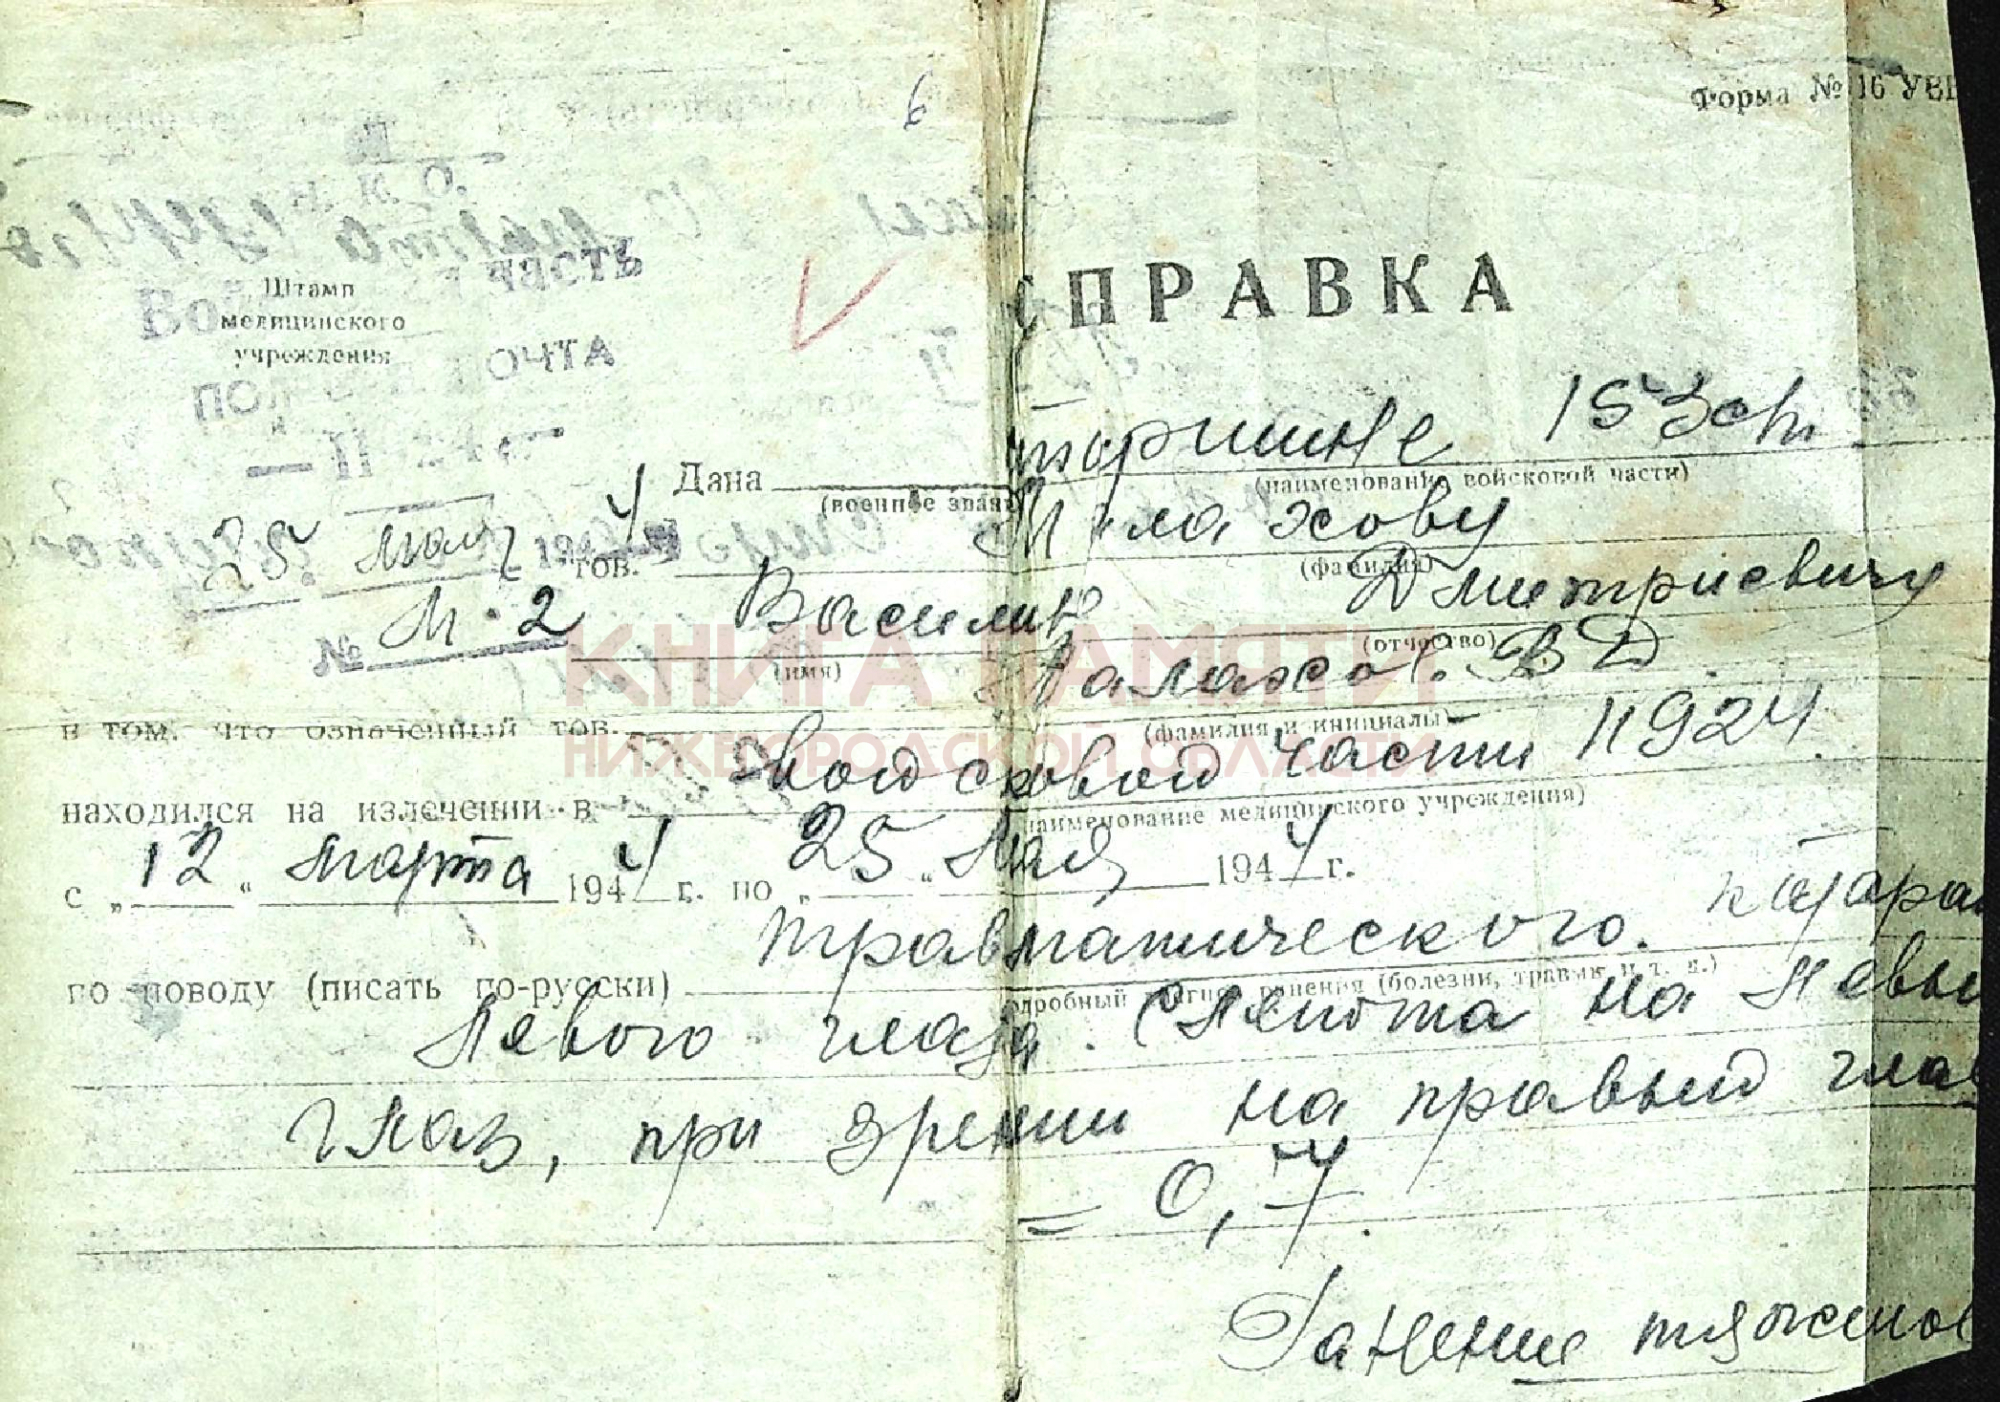 6
Форма № 16 УВГ
Н. К. О.
ЧАСТЬ
Штамп
медицинского
учреждения
ОЧТА
СПРАВКА
Дана старшине 153 сп
(военное звание) (наименование войсковой части)
25 мая 1944
тов. Малахову
(фамилия)
№ М-2
Василию Дмитриевичу
(имя) (отчество)
в том, что означенный тов. Малахов В Д
(фамилия и инициалы)
находился на излечении в войсковой части 11924
(наименование медицинского учреждения)
с „12“ марта 1944 г. по „25“ мая 1944 г.
по поводу (писать по-русски) травматического. катарак
(подробный диагноз ранения (болезни, травмы и т. д.)
левого глаза. (Слепота на левы
глаз, при зрении на правый глаз
= 0,7.
Ранение тяжелое
КНИГА ПАМЯТИ
НИЖЕГОРОДСКОЙ ОБЛАСТИ